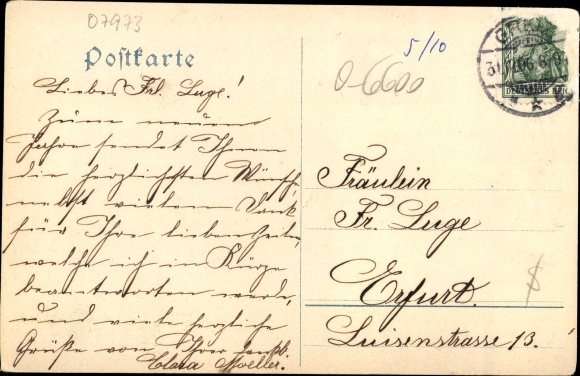 07973
Postkarte
5/10
0-6600
31.12.06. 8-9
DEUTSCHES REICH
Liebes Frl. Luge!
Zum neuen
Jahre sendet Ihnen
die herzlichsten Wünsche
nebst vielem Dank
für Ihre lieben Zeilen,
welche ich in Kürze
beantworten werde,
und viele herzliche
Grüße von Ihrer
Clara Moeller.
Fräulein
Fr. Luge
Erfurt.
Luisenstrasse 13.